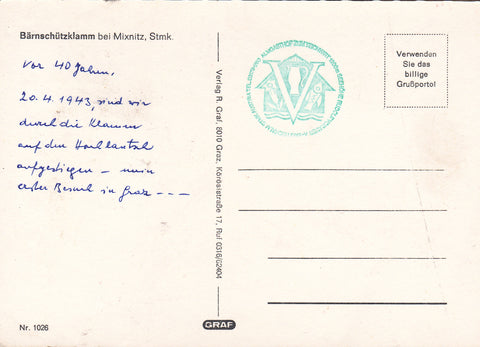 Bärnschützklamm bei Mixnitz, Stmk.
Vor 40 Jahren,
20.4.1943, sind wir
durch die Klamm
auf den Hochlantsch
aufgestiegen – mein
erster Besuch in Graz ---
Nr. 1026
Verlag R. Graf, 8010 Graz, Körösistraße 17, Ruf 0316/62404
GRAF
V
Verwenden
Sie das
billige
Grußporto!